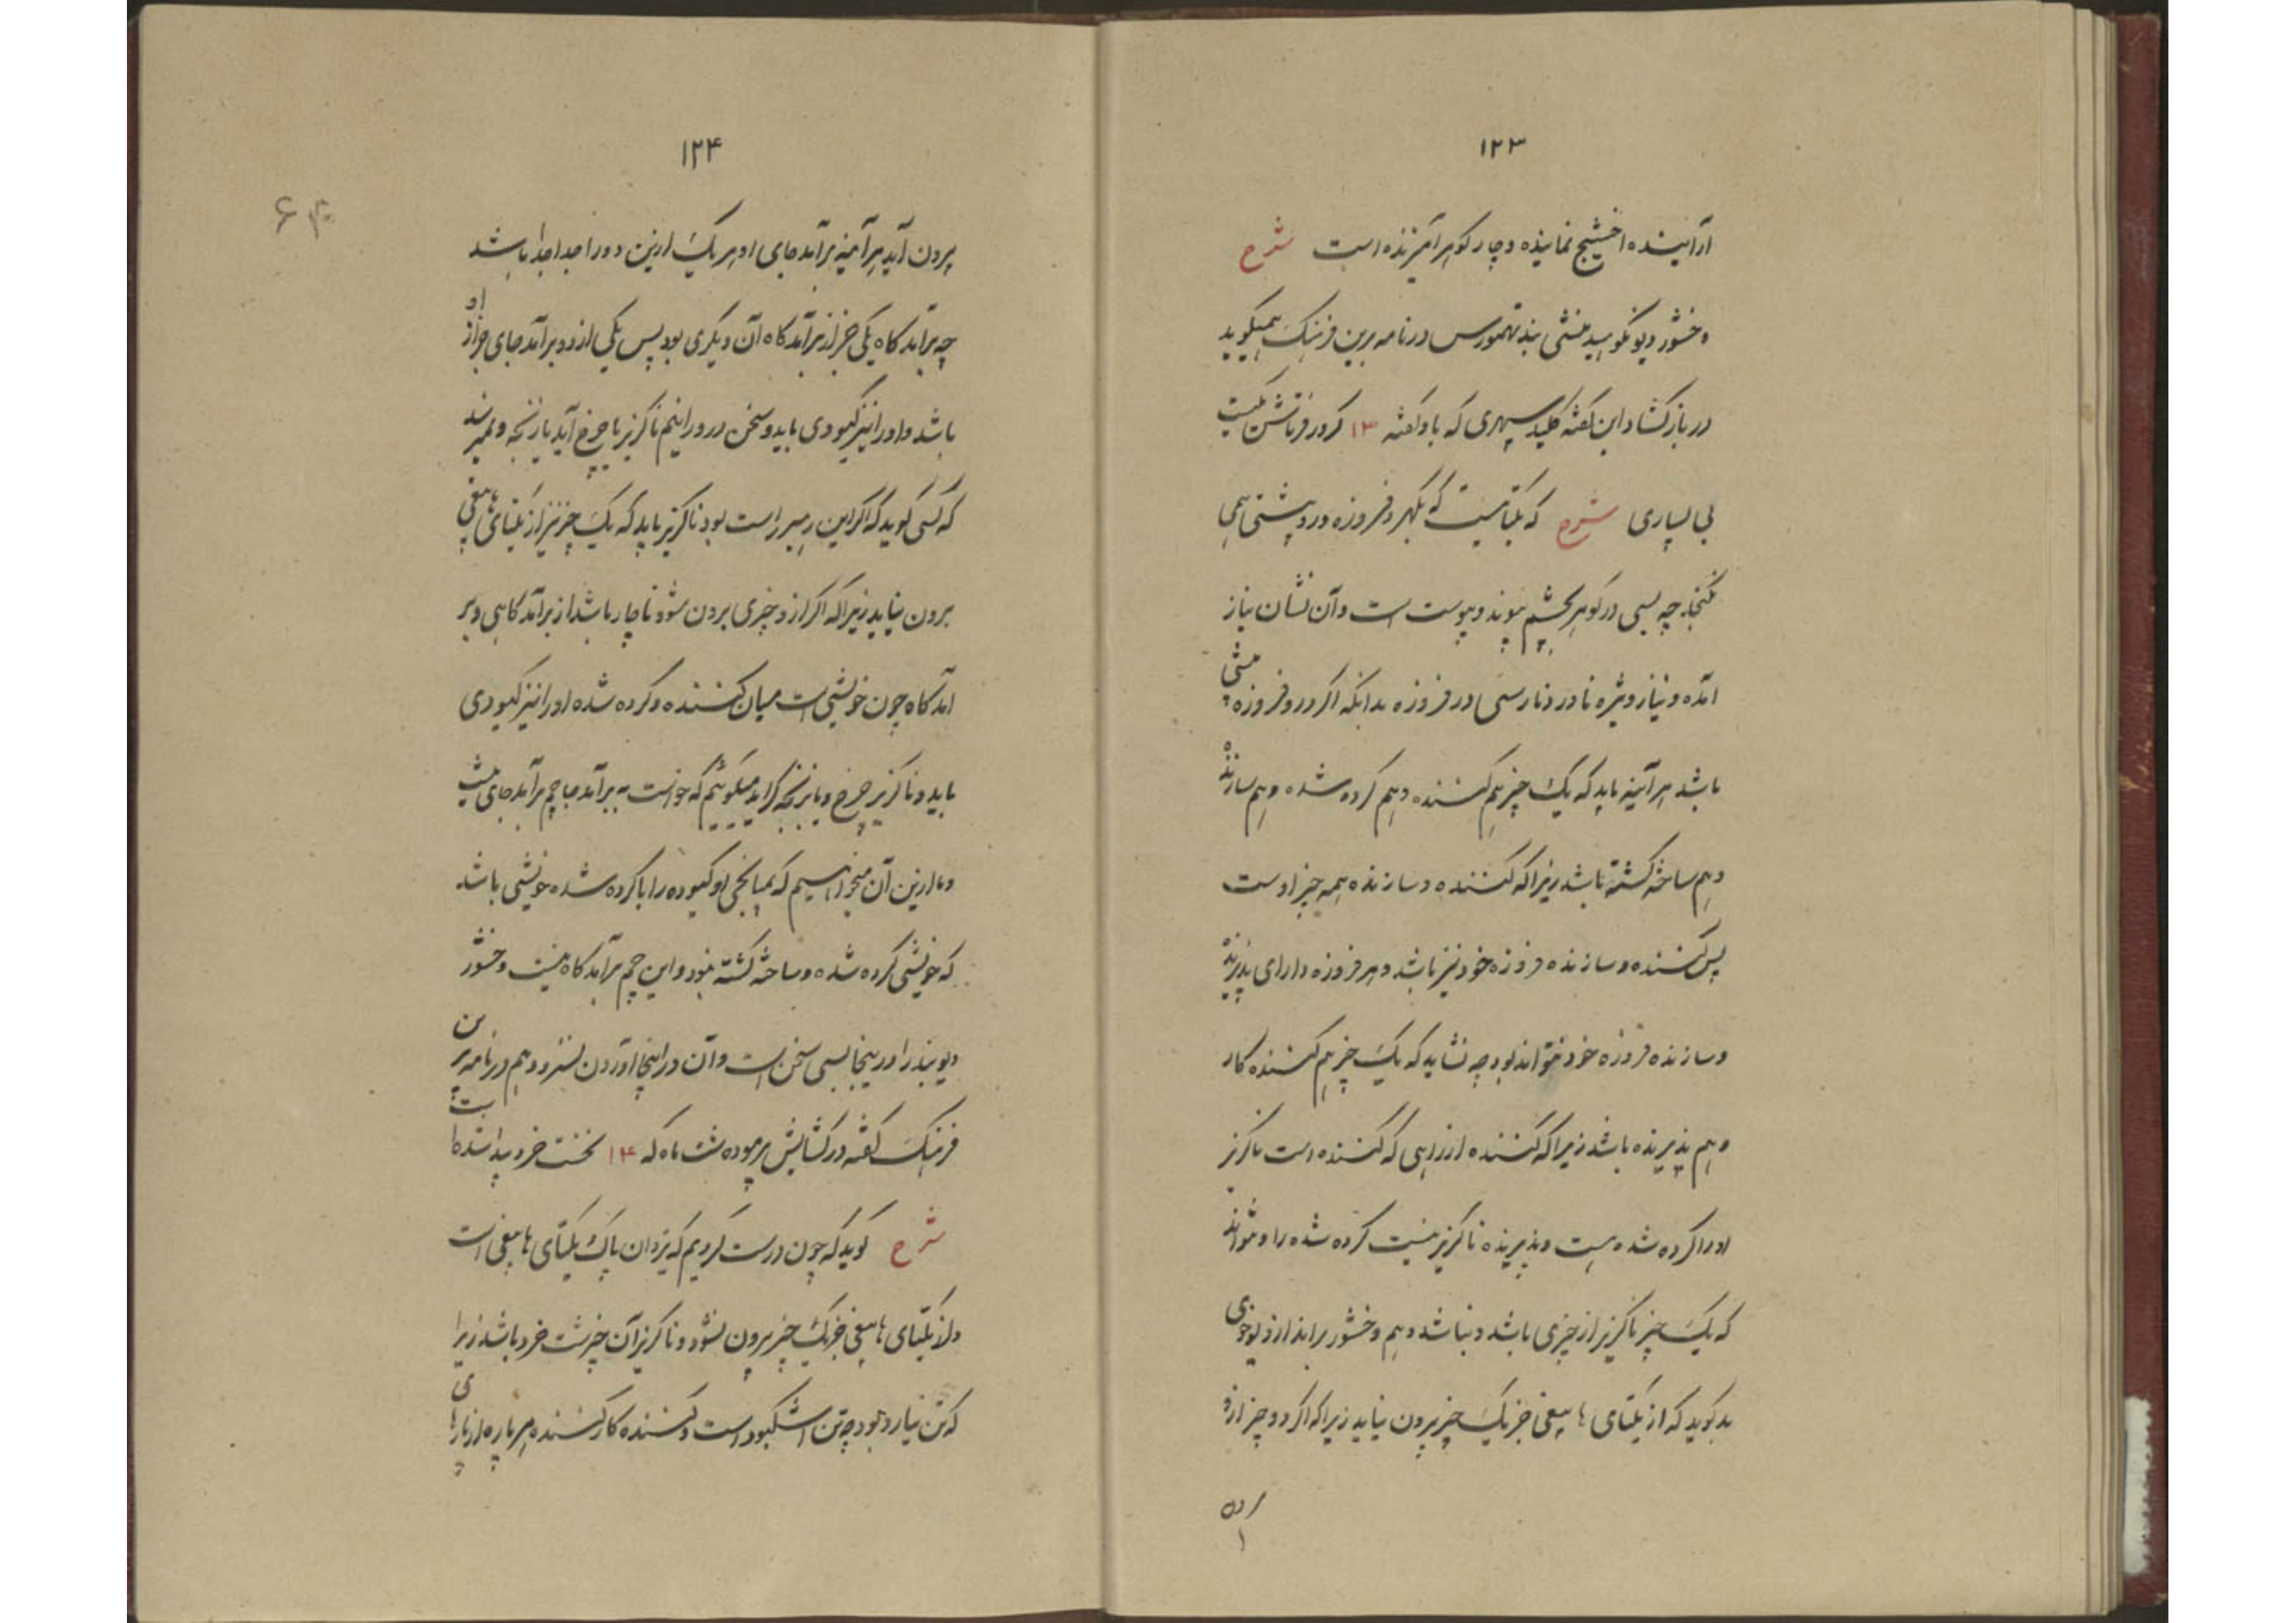 ۱۲۳
ازآینده اخشیج نماینده و چار گوهر آمیزنده است شرح
وخشور دیو نکوهیده منشی بند تهمورس در نامه برین فرهنگ همیگوید
در بازکشاد این کفته کلید سپهری که باو کفته ۱۳
بی بسیاری شرح که یکتائیست که نگهر و فروزه درو پستی همی
نکنجد چه بسی در گوهر بچشم پیوند و پیوست است و آن نشان نیاز
آمده و نیاز ویژه نادر و نارسی در فروزه بدانکه اگر درو فروزه
باشد هر آئینه باید که یک چیز هم کننده و هم کرده شده و هم سازنده
و هم ساخته کشته باشد زیرا که کننده و سازنده همه چیز اوست
پس کننده و سازنده فروزه خود نیز باشد و هر فروزه دارای پذیرنده
و سازنده فروزه خود نتواند بود چه نشاید که یک چیز هم کننده کار
و هم پذیرنده باشد زیرا که کننده ازراهی که کننده است ناکزیر
اورا کرده شده است و پذیرنده ناکزیر نیست کرده شده را و نتواند
که یک چیز ناکزیر از چیزی باشد و نباشد و هم وخشور براند از دیو خوی
بد کوید که از یکتای هایبغی جز یک چیز بیرون نیاید زیرا که اکر دو چیز ازو
۱۲۴
بیرون آید هر آئینه برآمد جای او هر یک ازین دو را جدا جدا باشد
چه برآمد کاه یکی جز از برآمد کاه آن دیگری بود پس یکی از دو برآمد جای جز از او
باشد و اورا نیز کیودی باید و سخن درو رانیم ناکزیر با چرخ آید یا زنجه و نمیرسد
که کسی کوید که اکر این رمیر راست بود ناکزیر باید که یک چیز نیز از یکتای هایبغی
برون نیاید زیرا که اکر ازو چیزی برون شود ناچار باشد از برآمد کاهی و بر
آمد کاه چون خویشی است میان کننده و کرده شده اورا نیز کیودی
باید و ناکزیر چرخ و یا زنجه کراید میکوئیم که خواست برآمد جا چم برآمد جای نیست
و ما ازین آن میخواهیم که بمیانجی او کیوده را با کرده شده خویشی باشد
که خویشی کرده شده و ساخته کشته نبود و این چم برآمد کاه نیست وخشور
دیو بند را در ینجا بسی سخن است و آن در اینجا آوردن نسزد و هم در نامه برین
فرهنگ کفته در کشایش فرموده شت ماه که ۱۴ نخست خرد پیدا شده است
شرح کوید که چون درست کردیم که یزدان پاک یکتای هایبغی است
و از یکتای هایبغی جز یک چیز بیرون نشود و ناکزیر آن چیز شت خرد باشد زیرا
که تن نیارد بود چه تن است و کننده کار کننده هر پاره از پارهای